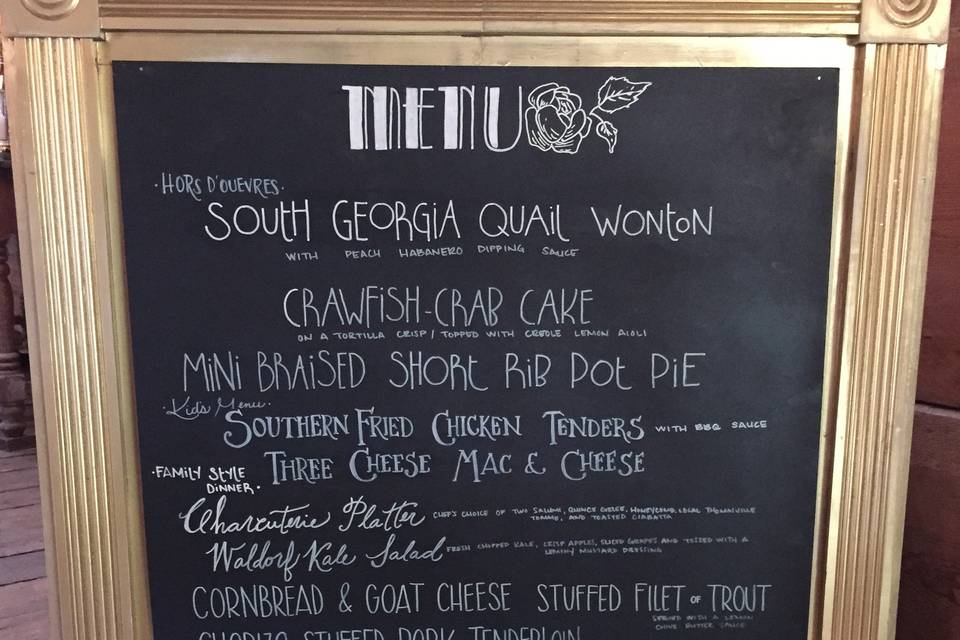 MENU
·HORS D'OUEVRES·
SOUTH GEORGIA QUAIL WONTON
WITH PEACH HABANERO DIPPING SAUCE
CRAWFISH-CRAB CAKE
ON A TORTILLA CRISP / TOPPED WITH CREOLE LEMON AIOLI
MINI BRAISED SHORT RIB POT PIE
·Kid's Menu·
SOUTHERN FRIED CHICKEN TENDERS WITH BBQ SAUCE
THREE CHEESE MAC & CHEESE
·FAMILY STYLE
DINNER·
Charcuterie Platter CHEF'S CHOICE OF TWO SALUMI, QUINCE CHEESE, HONEYCOMB, LOCAL THOMASVILLE
TOMME, AND TOASTED CIABATTA
Waldorf Kale Salad FRESH CHOPPED KALE, CRISP APPLES, SLICED GRAPES AND TOSSED WITH A
LEMONY MUSTARD DRESSING
CORNBREAD & GOAT CHEESE STUFFED FILET OF TROUT
SERVED WITH A LEMON
CHIVE BUTTER SAUCE
CHORIZO STUFFED PORK TENDERLOIN